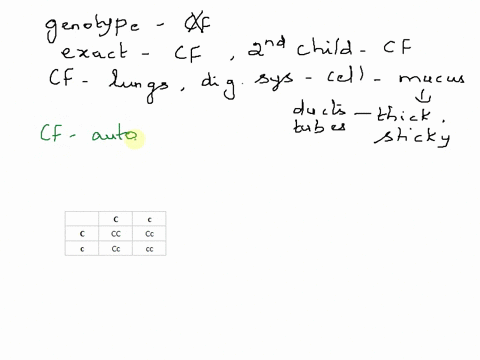 genotype - CF
exact - CF , 2nd child - CF
CF - lungs, dig. sys - cell - mucus
ducts - thick,
tubes sticky
CF - auto
C c
C CC Cc
c Cc cc